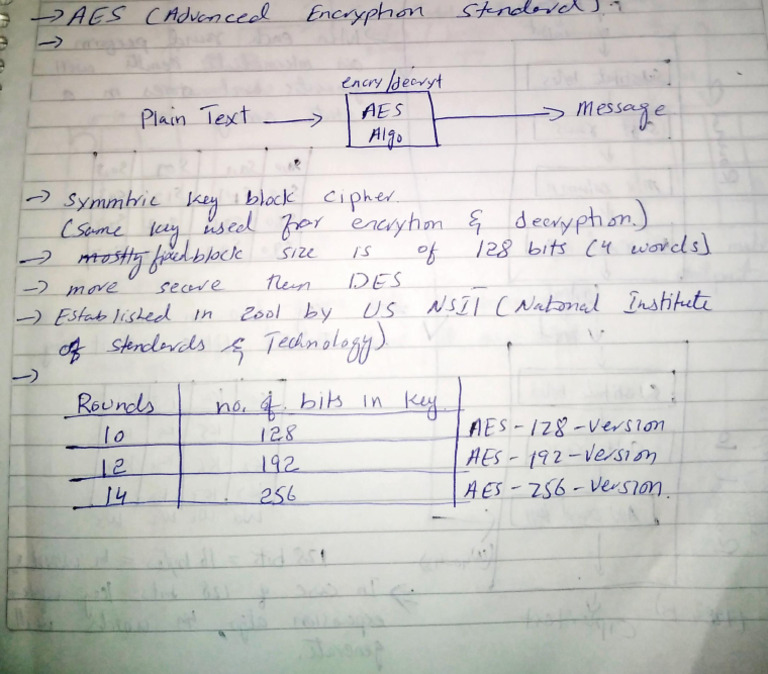 → AES (Advanced Encryption Standard).
→
encry/decryt
Plain Text → AES Algo → Message
→ Symmtric key block cipher.
(same key used for encryption & decryption.)
→ mostly fixed block size is of 128 bits (4 words)
→ more secure then DES
→ Established in 2001 by US NSIT (National Institute
of Standards & Technology)
→
Rounds no. of bits in key
10 128 AES-128-Version
12 192 AES-192-Version
14 256 AES-256-Version.